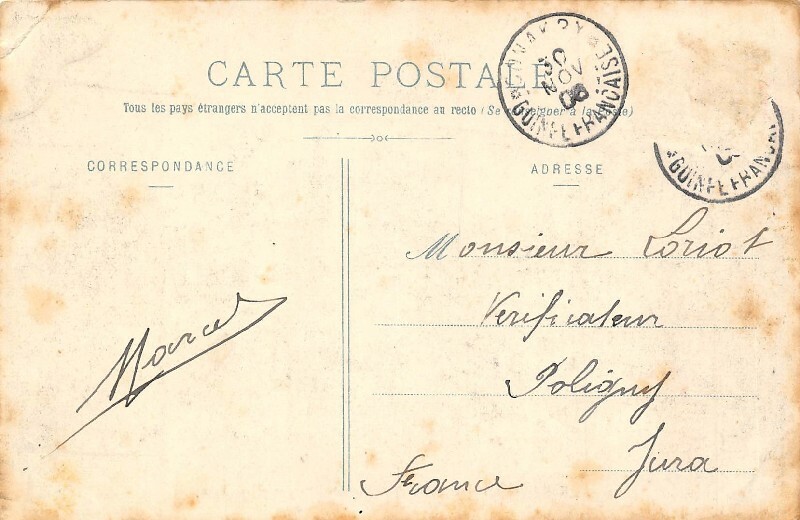 CARTE POSTALE
Tous les pays étrangers n'acceptent pas la correspondance au recto (Se renseigner à la Poste)
CORRESPONDANCE
ADRESSE
CONAKRY
NOV
GUINÉE FRANÇAISE
GUINÉE FRANÇ
Monsieur Loriot
Verificateur
Poligny
Jura
France
Marcel